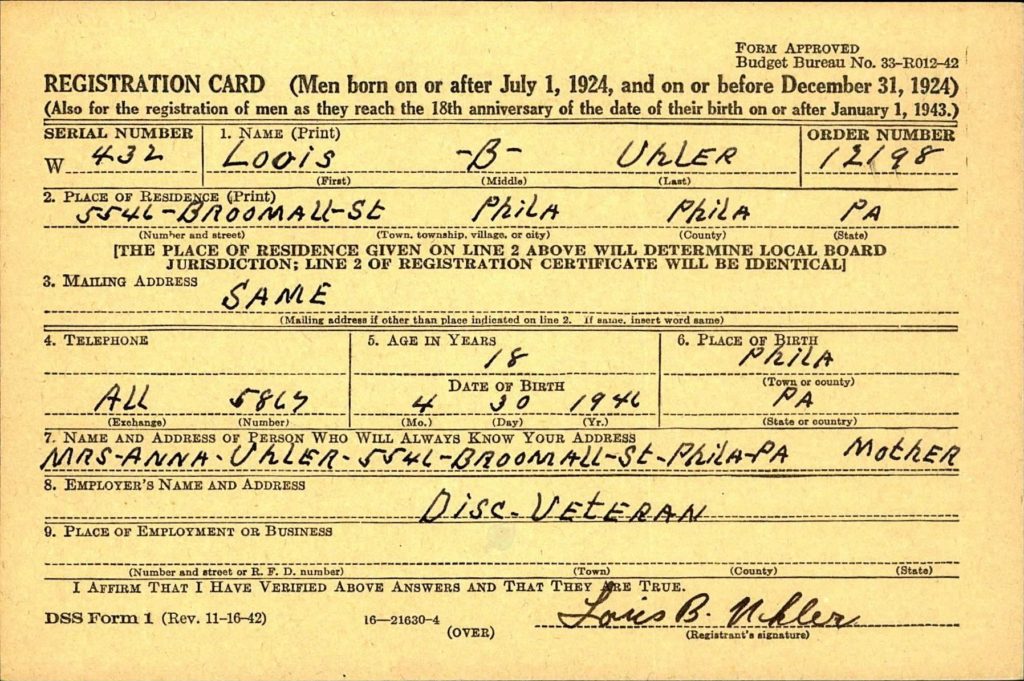 FORM APPROVED
Budget Bureau No. 33-R012-42
REGISTRATION CARD (Men born on or after July 1, 1924, and on or before December 31, 1924)
(Also for the registration of men as they reach the 18th anniversary of the date of their birth on or after January 1, 1943.)
SERIAL NUMBER 1. NAME (Print) ORDER NUMBER
W 432 LOUIS -B- UHLER 12198
(First) (Middle) (Last)
2. PLACE OF RESIDENCE (Print)
5546-BROOMALL-ST PHILA PHILA PA
(Number and street) (Town, township, village, or city) (County) (State)
[THE PLACE OF RESIDENCE GIVEN ON LINE 2 ABOVE WILL DETERMINE LOCAL BOARD
JURISDICTION; LINE 2 OF REGISTRATION CERTIFICATE WILL BE IDENTICAL]
3. MAILING ADDRESS
SAME
(Mailing address if other than place indicated on line 2. If same, insert word same)
4. TELEPHONE 5. AGE IN YEARS 6. PLACE OF BIRTH
18 PHILA
DATE OF BIRTH (Town or county)
ALL 5867 4 30 1946 PA
(Exchange) (Number) (Mo.) (Day) (Yr.) (State or country)
7. NAME AND ADDRESS OF PERSON WHO WILL ALWAYS KNOW YOUR ADDRESS
MRS-ANNA-UHLER-5546-BROOMALL-ST-PHILA-PA MOTHER
8. EMPLOYER'S NAME AND ADDRESS
DISC-VETERAN
9. PLACE OF EMPLOYMENT OR BUSINESS
(Number and street or R. F. D. number) (Town) (County) (State)
I AFFIRM THAT I HAVE VERIFIED ABOVE ANSWERS AND THAT THEY ARE TRUE.
DSS Form 1 (Rev. 11-16-42) 16—21630-4 Louis B. Uhler
(OVER) (Registrant's signature)